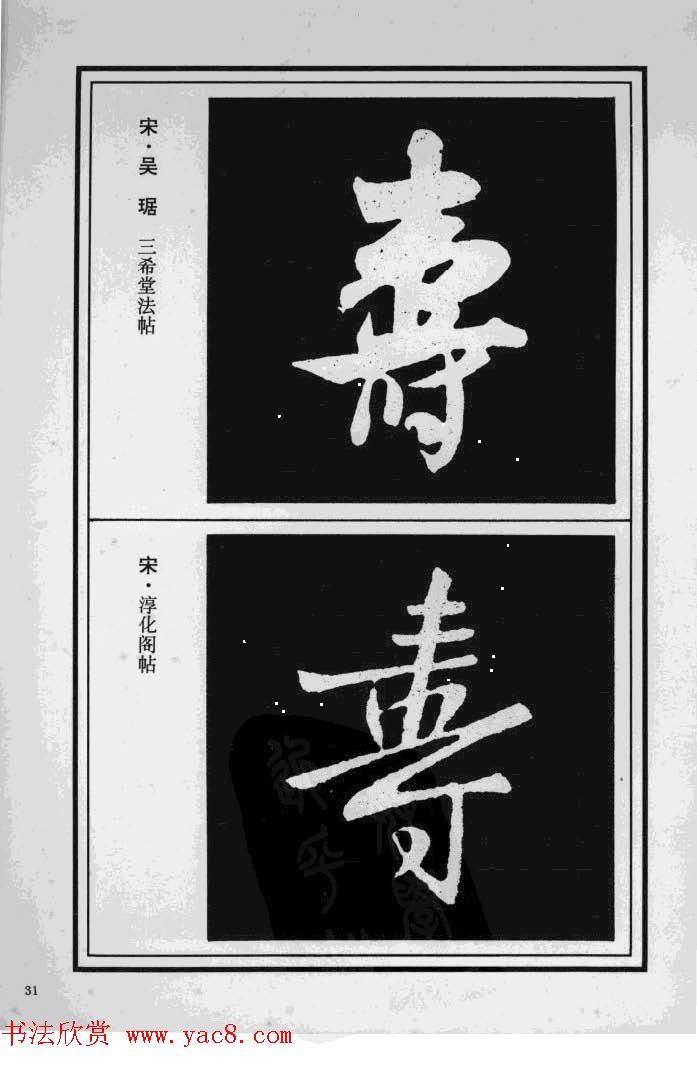 宋·吴琚 三希堂法帖
壽
宋·淳化阁帖
壽
31
书法欣赏 www.yac8.com